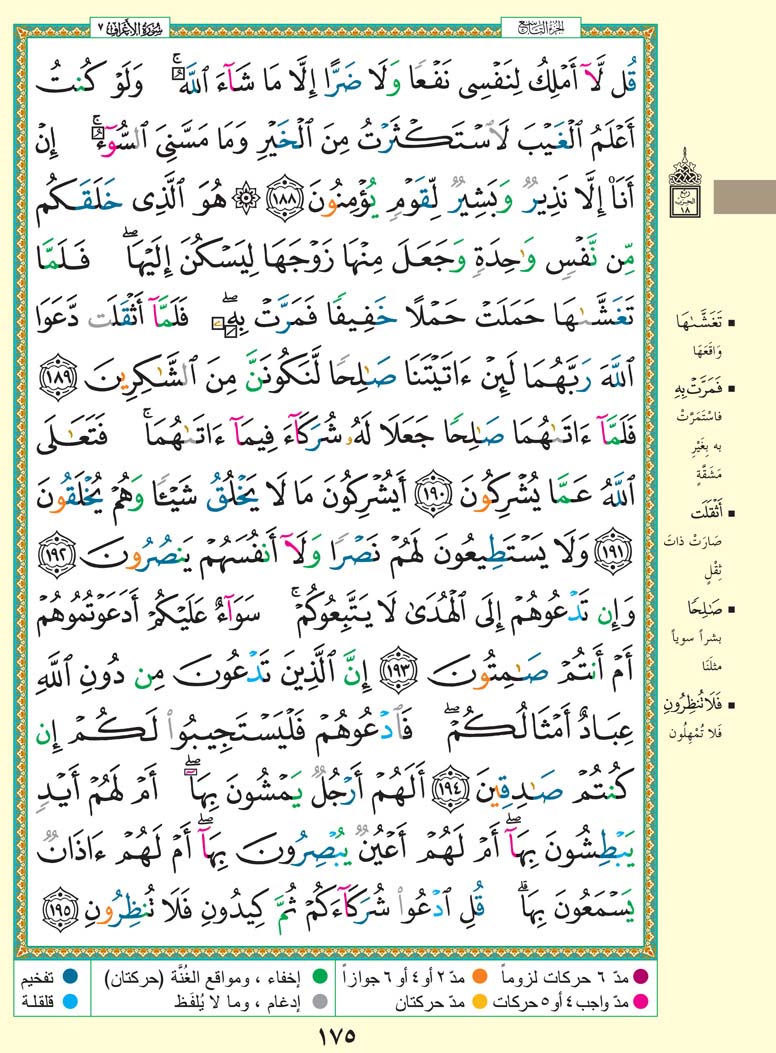 سُورَةُ الأَعْرَافِ ٧
الجُزْءُ التَّاسِعُ
قُل لَّآ أَمْلِكُ لِنَفْسِى نَفْعًا وَلَا ضَرًّا إِلَّا مَا شَآءَ ٱللَّهُ ۚ وَلَوْ كُنتُ
أَعْلَمُ ٱلْغَيْبَ لَٱسْتَكْثَرْتُ مِنَ ٱلْخَيْرِ وَمَا مَسَّنِىَ ٱلسُّوٓءُ ۚ إِنْ
أَنَا۠ إِلَّا نَذِيرٌ وَبَشِيرٌ لِّقَوْمٍ يُؤْمِنُونَ ١٨٨ ۞ هُوَ ٱلَّذِى خَلَقَكُم
مِّن نَّفْسٍ وَٰحِدَةٍ وَجَعَلَ مِنْهَا زَوْجَهَا لِيَسْكُنَ إِلَيْهَا ۖ فَلَمَّا
تَغَشَّىٰهَا حَمَلَتْ حَمْلًا خَفِيفًا فَمَرَّتْ بِهِۦ ۖ فَلَمَّآ أَثْقَلَت دَّعَوَا
ٱللَّهَ رَبَّهُمَا لَئِنْ ءَاتَيْتَنَا صَٰلِحًا لَّنَكُونَنَّ مِنَ ٱلشَّٰكِرِينَ ١٨٩
فَلَمَّآ ءَاتَىٰهُمَا صَٰلِحًا جَعَلَا لَهُۥ شُرَكَآءَ فِيمَآ ءَاتَىٰهُمَا ۚ فَتَعَٰلَى
ٱللَّهُ عَمَّا يُشْرِكُونَ ١٩٠ أَيُشْرِكُونَ مَا لَا يَخْلُقُ شَيْـًٔا وَهُمْ يُخْلَقُونَ
١٩١ وَلَا يَسْتَطِيعُونَ لَهُمْ نَصْرًا وَلَآ أَنفُسَهُمْ يَنصُرُونَ ١٩٢
وَإِن تَدْعُوهُمْ إِلَى ٱلْهُدَىٰ لَا يَتَّبِعُوكُمْ ۚ سَوَآءٌ عَلَيْكُمْ أَدَعَوْتُمُوهُمْ
أَمْ أَنتُمْ صَٰمِتُونَ ١٩٣ إِنَّ ٱلَّذِينَ تَدْعُونَ مِن دُونِ ٱللَّهِ
عِبَادٌ أَمْثَالُكُمْ ۖ فَٱدْعُوهُمْ فَلْيَسْتَجِيبُوا۟ لَكُمْ إِن
كُنتُمْ صَٰدِقِينَ ١٩٤ أَلَهُمْ أَرْجُلٌ يَمْشُونَ بِهَآ ۖ أَمْ لَهُمْ أَيْدٍ
يَبْطِشُونَ بِهَآ ۖ أَمْ لَهُمْ أَعْيُنٌ يُبْصِرُونَ بِهَآ ۖ أَمْ لَهُمْ ءَاذَانٌ
يَسْمَعُونَ بِهَا ۗ قُلِ ٱدْعُوا۟ شُرَكَآءَكُمْ ثُمَّ كِيدُونِ فَلَا تُنظِرُونِ ١٩٥
رُبع
الحِزب
١٨
▪ تَغَشَّىٰهَا
وَاقَعَهَا
▪ فَمَرَّتْ بِهِ
فاسْتَمَرَّتْ
به بِغَيْرِ
مَشَقَّةٍ
▪ أَثْقَلَت
صَارَتْ ذاتَ
ثِقْلٍ
▪ صَٰلِحًا
بشراً سوياً
مثلَنا
▪ فَلَا تُنظِرُونِ
فَلا تُمْهِلُون
مدّ ٦ حركات لزوماً
مدّ ٢ أو ٤ أو ٦ جوازاً
إخفاء ، ومواقع الغُنَّة (حركتان)
تفخيم
مدّ واجب ٤ أو ٥ حركات
مدّ حركتان
إدغام ، وما لا يُلفَظ
قلقلة
١٧٥